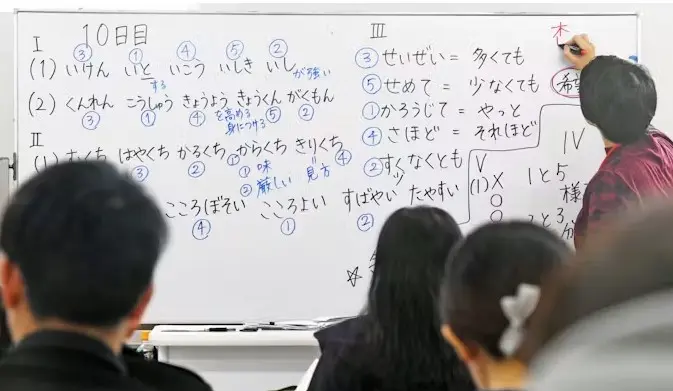 10日目
I
③ ① ④ ⑤ ②
(1) いけん いと いこう いしき いし が強い
する
(2) くんれん こうしゅう きょうよう きょうくん がくもん
③ ① ④ を高める ⑤ ②
身につける
II
はやくち かるくち からくち きりくち
③ ② ① 味 ④
② 厳しい 見方
こころぼそい こころよい すばやい たやすい
④ ① ②
III
③ せいぜい = 多くても
⑤ せめて = 少なくても
① かろうじて = やっと
④ さほど = それほど
② すくなくとも
IV
1と5
様
2と3
分
V
(1) X
O
O
木
希
☆